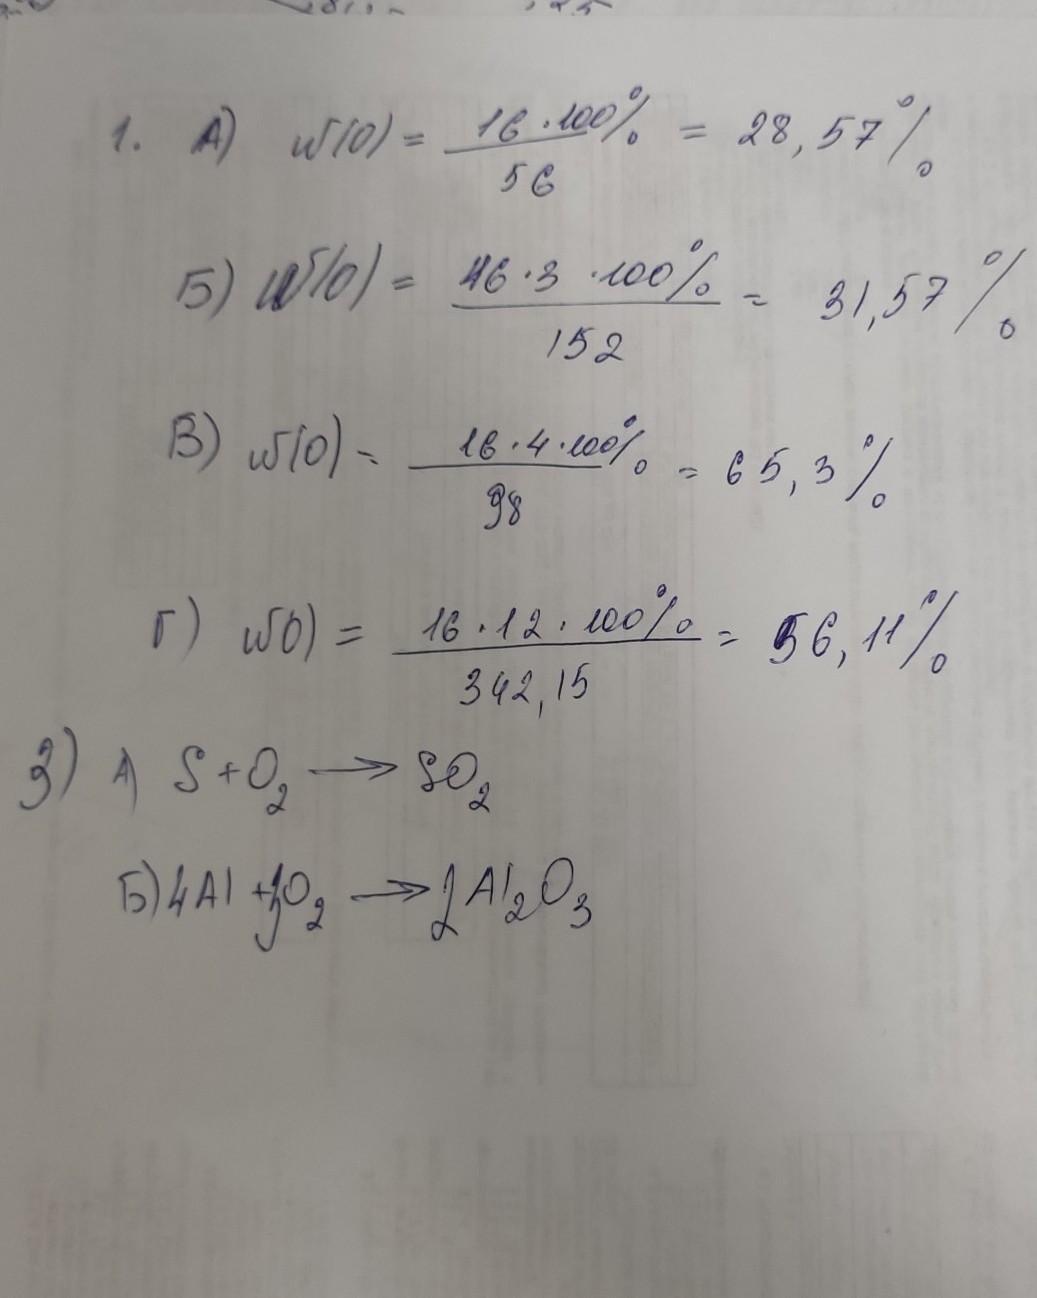 1. А) w(O) = 16·100% / 56 = 28,57%
Б) w(O) = 16·3·100% / 152 = 31,57%
В) w(O) = 16·4·100% / 98 = 65,3%
Г) w(O) = 16·12·100% / 342,15 = 56,11%
3) А) S + O₂ → SO₂
Б) 4Al + 3O₂ → 2Al₂O₃